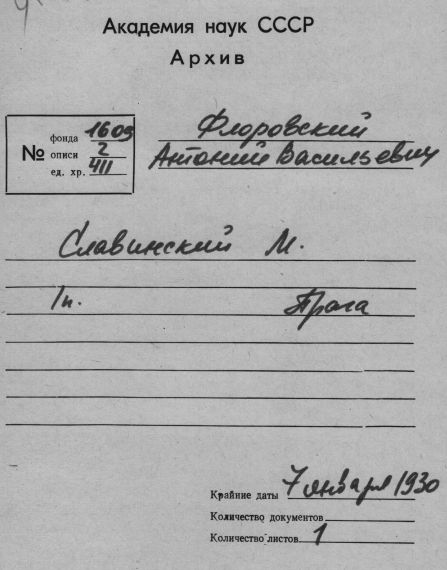 Академия наук СССР
Архив
№ фонда 1609
описи 2
ед. хр. 411
Флоровский
Антоний Васильевич
Славинский М.
1п. Прага
Крайние даты 7 января 1930
Количество документов
Количество листов 1